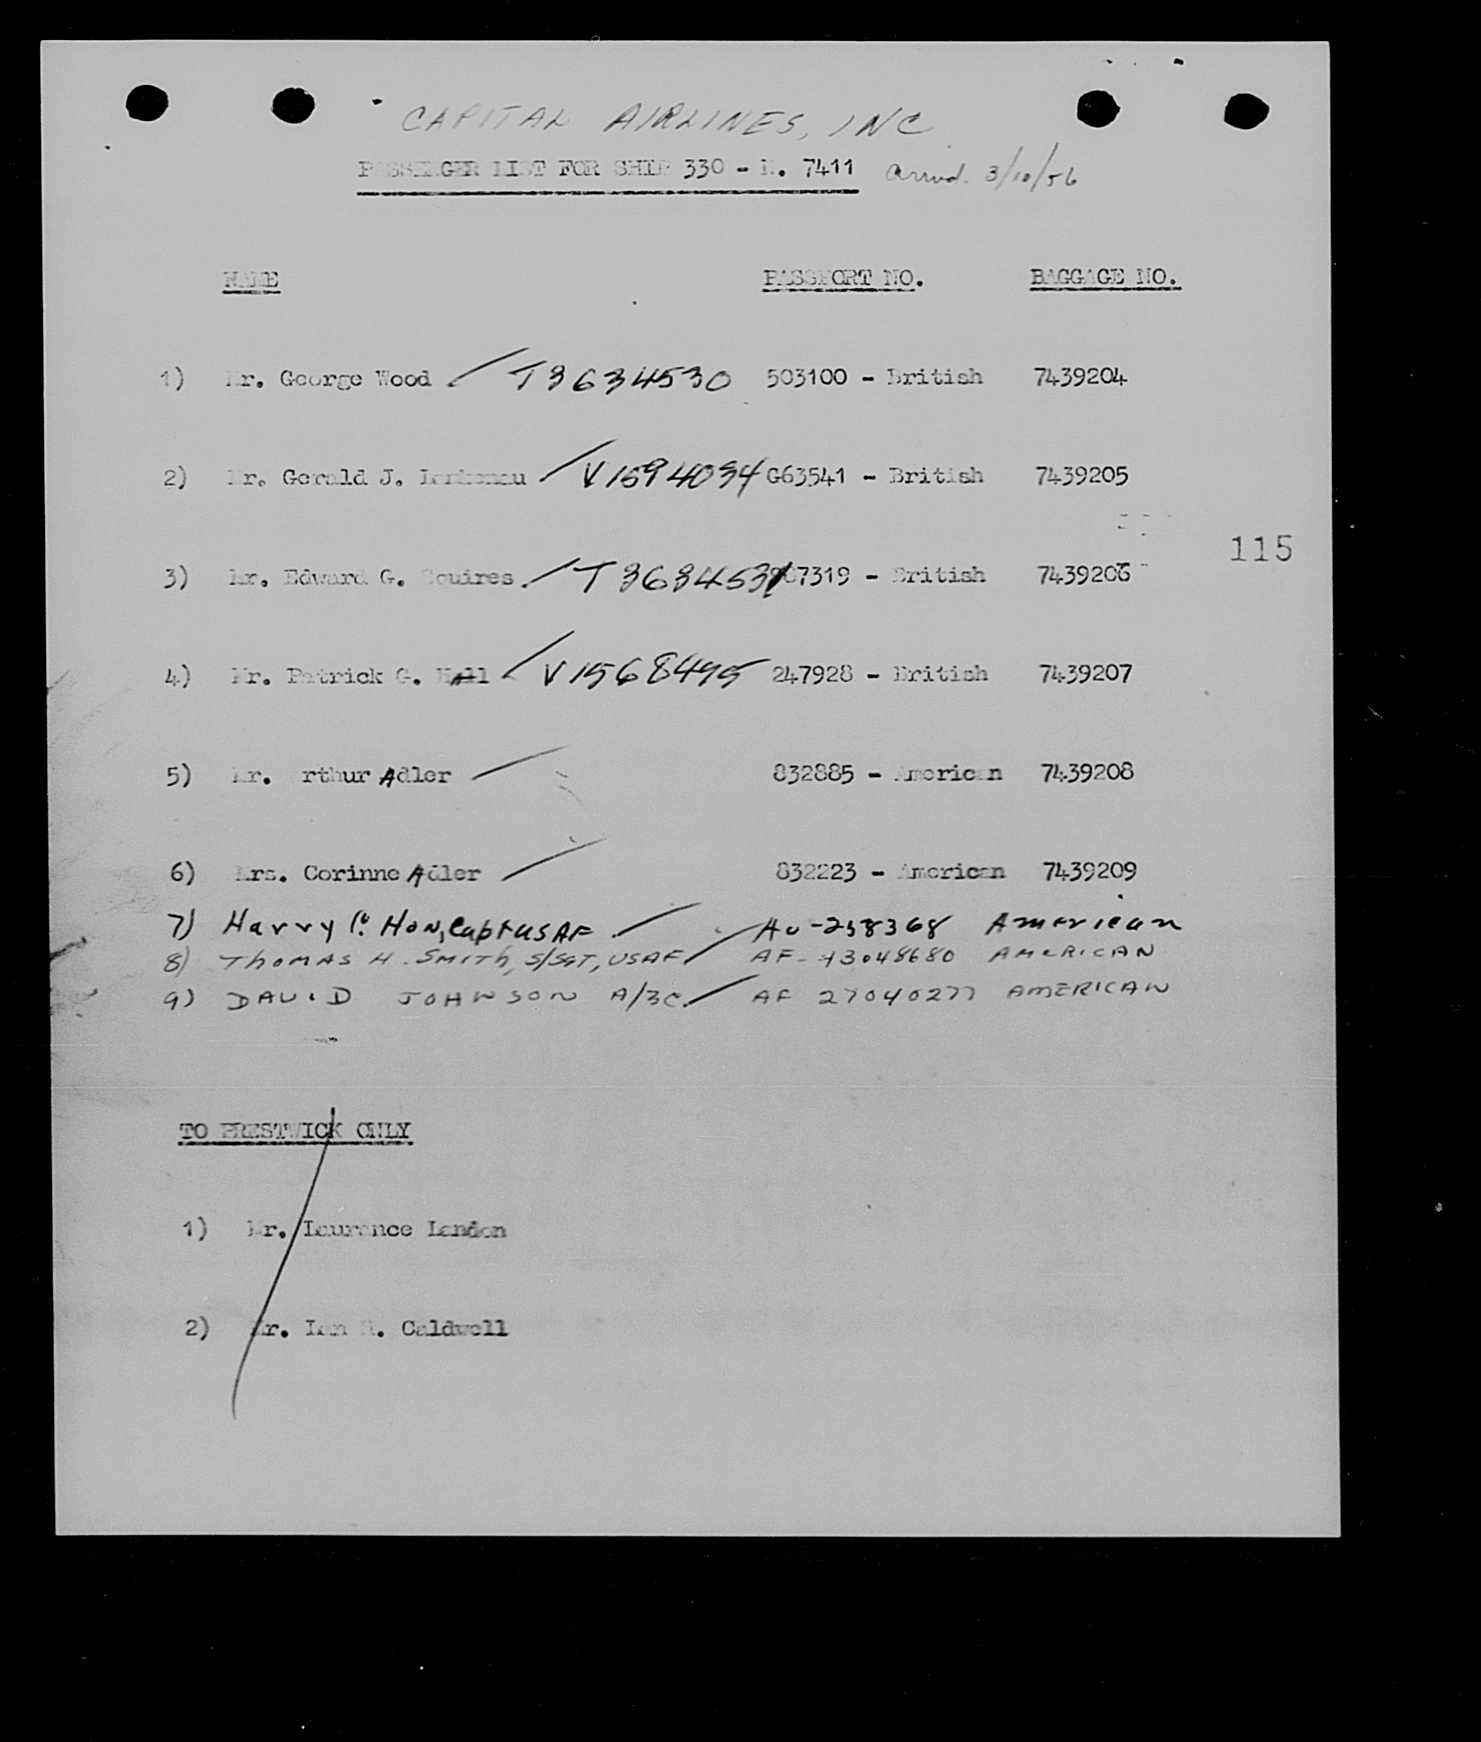 CAPITAL AIRLINES, INC
PASSENGER LIST FOR SHIP 330 - N. 7411 Arrvd. 3/10/56
NAME PASSPORT NO. BAGGAGE NO.
1) Mr. George Wood T3634530 503100 - British 7439204
2) Mr. Gerald J. V1594034 G63541 - British 7439205
115
3) Mr. Edward G. Squires T3634531 - British 7439206
4) Mr. Patrick G. Hall V1568495 247928 - British 7439207
5) Mr. Arthur Adler 832885 - American 7439208
6) Mrs. Corinne Adler 832223 - American 7439209
7) Harry P. Hon, Capt USAF American
8) Thomas H. Smith, S/Sgt, USAF AF-13048680 American
9) DAVID JOHNSON A/3C. AF 27040277 AMERICAN
TO PRESTWICK ONLY
1) Mr. Laurance Landon
2) Mr. Ian R. Caldwell